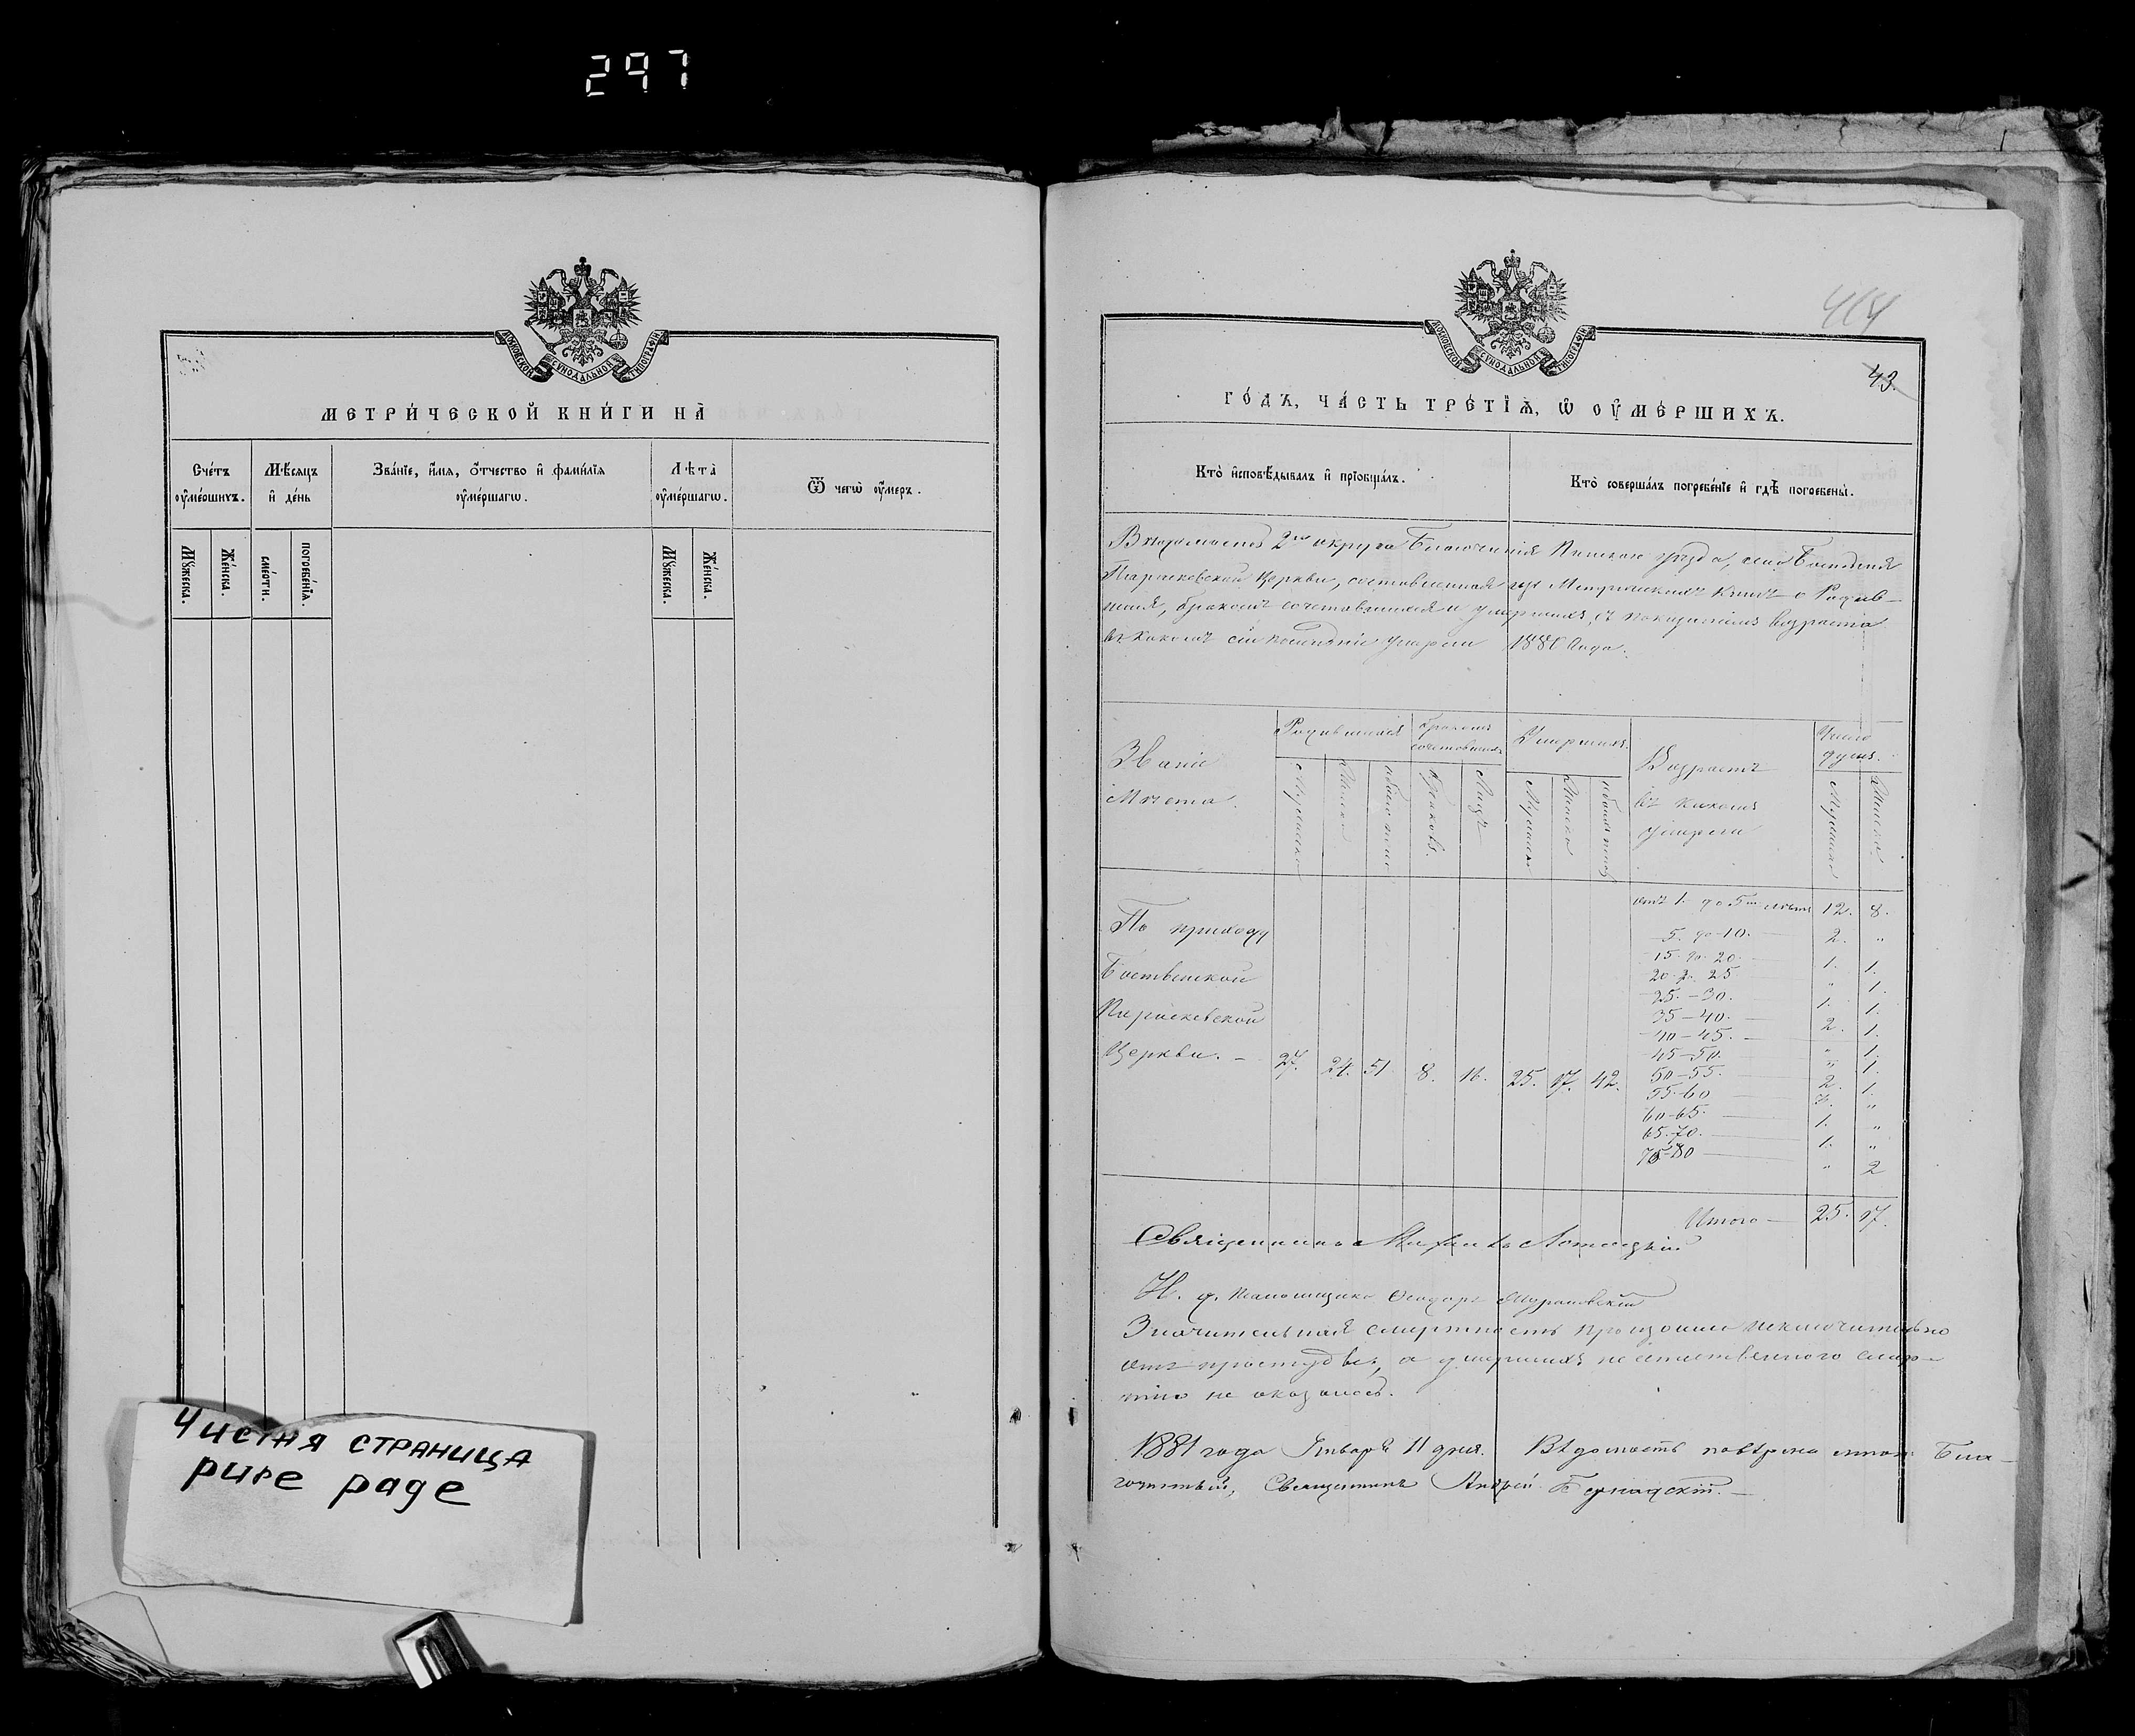 297
МОСКОВСКОЙ СУНОДАЛЬНОЙ ТИПОГРАФІИ
МЕТРИ́ЧЕСКОЙ КНИ́ГИ НА̀
Сче́тъ оу҆ме́ршихъ.
Мѣ́сяцъ и҆ де́нь
Зва́нїе, и҆́мѧ, ѻ҆́тчество и҆ фами́лїѧ оу҆ме́ршагѡ.
Лѣ́та̀ оу҆ме́ршагѡ.
Ѿ чегѡ̀ оу҆́меръ.
Мꙋ́жеска.
Же́нска.
сме́рти.
погребе́нїѧ.
Мꙋ́жеска.
Же́нска.
Чистая страница
pure page
464
43.
МОСКОВСКОЙ СУНОДАЛЬНОЙ ТИПОГРАФІИ
ГО́ДЪ, ЧА́СТЬ ТРЕ́ТЇѦ, Ѡ҆ ОУ҆МЕ́РШИХЪ.
Кто̀ и҆сповѣ́дывалъ и҆ прїобща́лъ.
Кто̀ соверша́лъ погребе́нїе и҆ гдѣ̀ погребены̀.
Вѣдомость 2го округа Благочинія уѣзда, села
Параскевской Церкви, составленная изъ Метрическихъ Книгъ о Родив-
шихся, бракомъ сочетавшихся и умершихъ, съ показаніемъ возраста
въ какомъ сіи послѣдніе умерли 1880 года.
Званіе
Мѣста.
Родившихся
Бракомъ сочетавшихся
Умершихъ.
Возрастъ
въ какомъ
умерли
Число душъ.
Мужеска
Женска
обоего пола
браковъ.
Лицъ
Мужеска
Женска
обоего пола
Мужеска
Женска
По приходу
Параскевской
Церкви. – 27. 24. 51. 8. 16. 25. 17. 42.
отъ 1. до 5ти лѣтъ 12. 8.
5. до 10. 2. „
15. до 20. 1. 1.
20. до 25 „ 1.
25. – 30. 1. 1.
35 – 40. 2. 1.
40 – 45. „ 1.
45 – 50. „ 1.
50 – 55. 2. 1.
55 – 60 „
60 – 65. 1. „
65. 70. 1. „
75 – 80 „ 2
Итого – 25. 17.
Священникъ Михаилъ
И. д. Псаломщика Ѳеодоръ
Значительная смертность произошла исключительно
отъ простуды, а умершихъ неестественною смер-
тію не оказалось.
1881 года Января 11 дня. Вѣдомость повѣрена мною: Бла-
гочинный, Священникъ Андрей